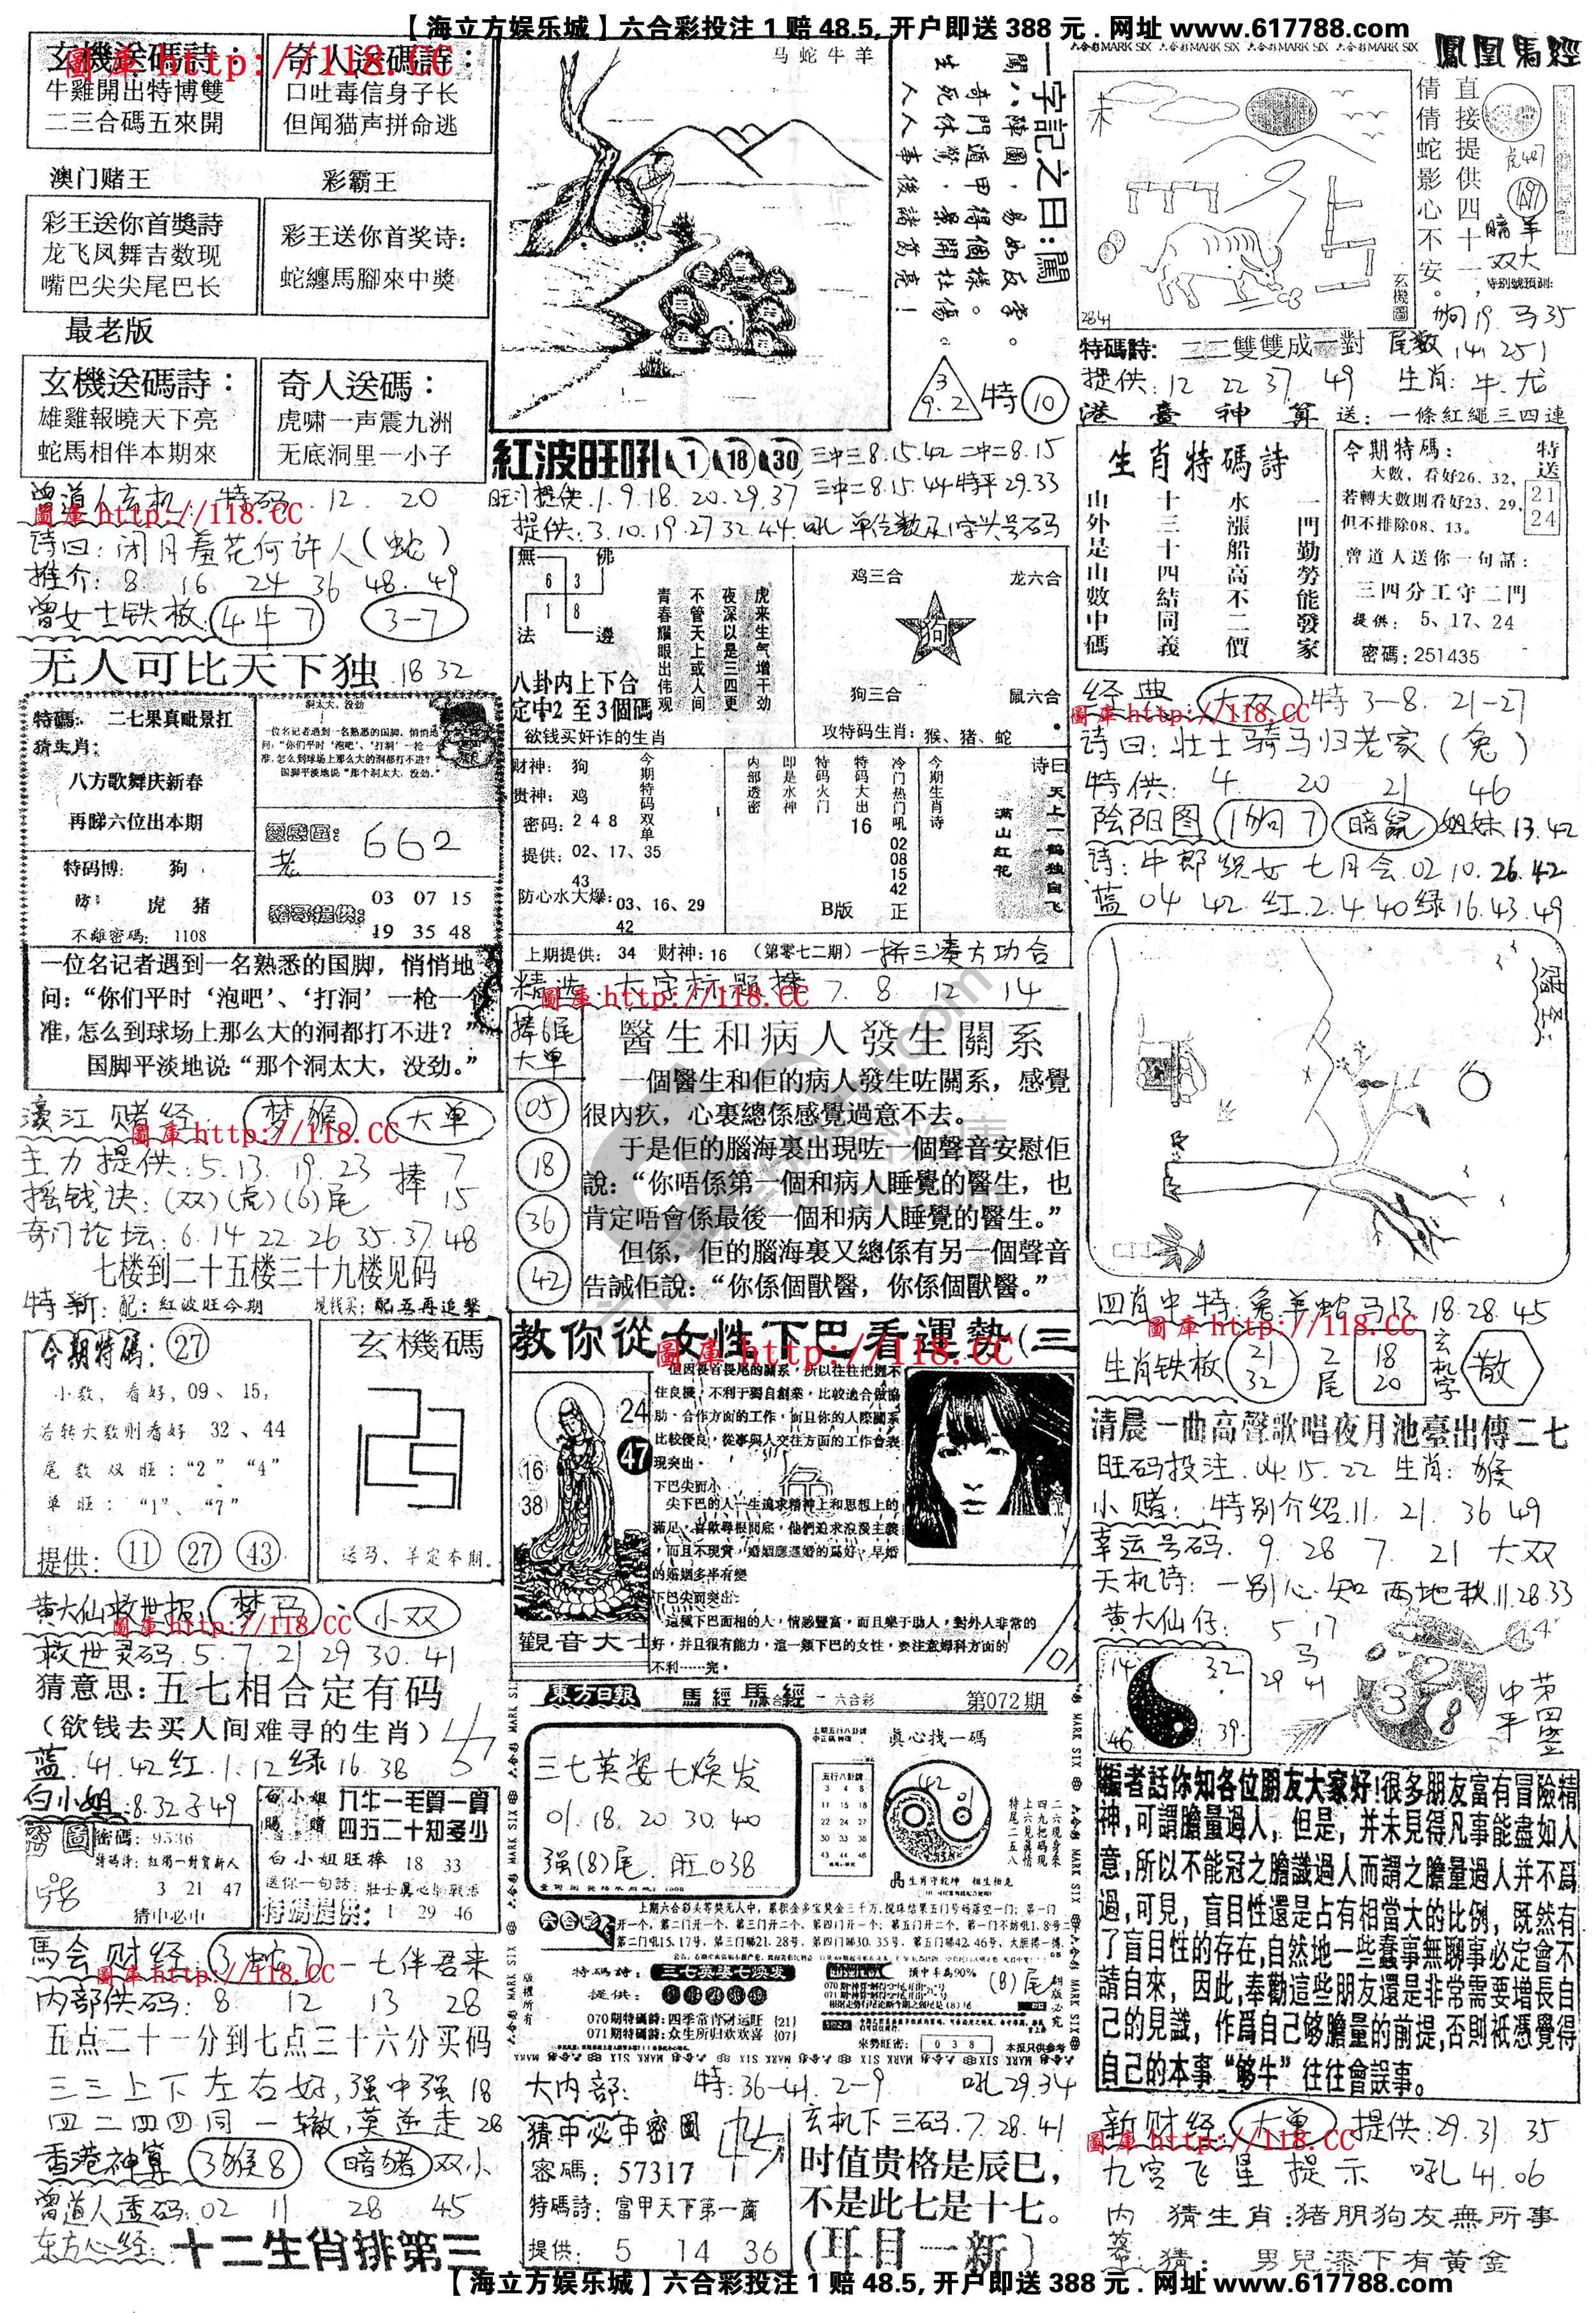 【海立方娱乐城】六合彩投注1赔48.5,开户即送388元.网址www.617788.com
玄機送碼詩：
牛雞開出特博雙
二三合碼五來開
奇人送碼詩：
口吐毒信身子长
但闻猫声拼命逃
圖庫 http://118.CC
澳门赌王
彩霸王
彩王送你首獎詩
龙飞凤舞吉数现
嘴巴尖尖尾巴长
彩王送你首奖诗：
蛇纏馬腳來中獎
最老版
玄機送碼詩：
雄雞報曉天下亮
蛇馬相伴本期來
奇人送碼：
虎啸一声震九洲
无底洞里一小子
曾道人玄机：特码.12.20
圖庫 http://118.CC
诗曰：闭月羞花何许人（蛇）
推介：8 16 24 36 48.49
曾女士铁板 4牛7 3-7
无人可比天下独 18 32
特碼：二七果真毗景扛
猜生肖：
八方歌舞庆新春
再睇六位出本期
特码博：狗
防：虎 猪
不離密碼：1108
662
03 07 15
19 35 48
一位名记者遇到一名熟悉的国脚，悄悄地
问：“你们平时‘泡吧’、‘打洞’一枪一个
准，怎么到球场上那么大的洞都打不进？”
国脚平淡地说：“那个洞太大，没劲。”
濠江赌经 梦猴 大单
圖庫 http://118.CC
主力提供：5.13.19.23 捧 7
摇钱诀：(双)(虎)(6)尾 15
奇门论坛：6.14.22.26.35.37.48
七楼到二十五楼三十九楼见码
特新：配：紅波旺今期 现钱买：配五再追擊
今期特碼：27
小数，看好，09、15，
若转大数则看好 32、44
尾数双旺：“2” “4”
单旺：“1”、“7”
提供：11 27 43
玄機碼
送马、羊定本期。
黄大仙救世报 梦马 小双
圖庫 http://118.CC
救世灵码.5.7.21 29 30.41
猜意思：五七相合定有码
（欲钱去买人间难寻的生肖）
蓝.41.42 红.1.12 绿 16.38
白小姐：8.32 3 49
密碼：9536
3 21 47
猜中必中
白小姐賜贈
九牛一毛算一算
四五二十知多少
白小姐旺棒 18 33
特碼提供：1 29 46
馬会财经 3蛇7 一七伴君来
圖庫 http://118.CC
内部供码：8 12 13 28
五点二十一分到七点三十六分买码
三三上下左右好，强中强 18
四二四四同一辙，英逆走 28
香港神算 3猴8 暗猪 双小
曾道人透码：02 11 28 45
东方心经：十二生肖排第三
马蛇牛羊
一字記之曰：闖
闖八陣圖，易如反掌。
奇門遁甲得個樣。
生死休驚，景開杜傷。
人人事後諸葛亮！
3 9.2 特 10
紅波旺吼 1 18 30
三中三8.15.42 二中二8.15
旺门提供.1.9.18.20.29.37 三中二8.15.44特平29.33
提供：3.10.19.27 32.44.吼 单位数及1字头号码
無 佛
6 3
1 8
法 邊
八卦内上下合
定中2至3個碼
欲钱买奸诈的生肖
虎来生气增干劲
夜深以是三四更
不管天上或人间
青春耀眼出伟观
鸡三合 龙六合
狗
狗三合 鼠六合
攻特码生肖：猴、猪、蛇
财神：狗
贵神：鸡
密码：2 4 8
提供：02、17、35
43
防心水大爆：03、16、29
42
今期特码双单
内部透密
即是水神
特码火门
特码大出
16
冷门热门吼
02
08
15
42
今期生肖诗
B版 正
诗曰
天上一鹤独自飞
满山红花
上期提供：34 财神：16 （第零七二期）一拆三凑方功合
精选：大字标题捧 7.8.12 14
圖庫 http://118.CC
捧6尾
大单
05
18
36
42
醫生和病人發生關系
一個醫生和佢的病人發生咗關系，感覺
很內疚，心裏總係感覺過意不去。
于是佢的腦海裏出現咗一個聲音安慰佢
說：“你唔係第一個和病人睡覺的醫生，也
肯定唔會係最後一個和病人睡覺的醫生。”
但係，佢的腦海裏又總係有另一個聲音
告誡佢說：“你係個獸醫，你係個獸醫。”
教你從女性下巴看運勢（三
圖庫 http://118.CC
24
47
16
38
觀音大士
但因畏首畏尾的關系，所以往往把握不
住良機，不利于獨自創業，比較適合做協
助、合作方面的工作，而且你的人際關系
比較優良，從事與人交往方面的工作會表
現突出。
下巴尖而小
尖下巴的人一生追求精神上和思想上的
滿足，喜歡尋根問底，他們追求浪漫主義
，而且不現實，婚姻應遲婚的爲好，早婚
的婚姻多半有變
下巴尖而突出：
這種下巴面相的人，情感豐富，而且樂于助人，對外人非常的
好，并且很有能力，這一類下巴的女性，要注意婦科方面的
不利……完。
東方日報 馬經馬經 六合彩 第072期
三七英姿七焕发
01.18.20.30.40
强(8)尾.旺038
五行八卦牌
3 4 8
11 15 18
22 24 27
30 33 38
43 44 46
真心找一碼
42 01
上期六合彩头等獎无人中，累积金多宝奖金三千万，搅珠结果五门号码落空一门；第一门
开一个，第二门开一个，第三门开二个，第四门开一个；第五门开二个，第一门不妨吼1.8号
第二门吼15.17号，第三门睇21.28号，第四门睇30.35号，第五门睇42.46号，大胆搏一搏
特碼詩：三七英姿七焕发
提供：
070期特碼詩：四季常青冠运旺 {21}
071期特碼詩：众生所归欢欢喜 {07}
預中率為90%
(8)尾
來勢旺密：0 3 8 本报只供参考
版權所有 翻版必究
大内部： 特：36-41.2-9 吼29.34
猜中必中密圖
密碼：57317
特碼詩：富甲天下第一廣
提供：5 14 36
玄机下三码.7.28.41
时值贵格是辰巳，
不是此七是十七。
（耳目一新）
六合彩MARK SIX
鳳凰馬經
直接提供四十一，
倩倩蛇影心不安。
暗羊
双大
特别號預測：
狗19.马35
2841
玄機圖
特碼詩：二二雙雙成一對 尾数 141.251
提供：12 22 37 49 生肖：牛.龙
港臺神算 送：一條紅繩三四連
生肖特碼詩
一門勤勞能發家
水漲船高不二價
十三十四結同義
山外是山數中碼
今期特碼：
大數，看好26、32，
若轉大數則看好23、29，
但不排除08、13。
特送 21 24
曾道人送你一句話：
三四分工守二門
提供：5、17、24
密碼：251435
经典 大双 特3-8.21-27
圖庫 http://118.CC
诗曰：壮士骑马归老家（兔）
特供：4 20 21 46
阴阳图 1狗7 暗鼠 姐妹13.42
诗：牛郎织女七月会 02 10.26.42
蓝04 42.红.2.4.40绿16.43.49
四肖中特：兔羊蛇马13 18.28.45
圖庫 http://118.CC
生肖铁板 21 32 2尾 18 20 玄机字 散
清晨一曲高聲歌唱夜月池臺出傳二七
旺码投注.04.15.22 生肖：猴
小赌：特别介绍.11.21.36 49
幸运号码.9.28 7.21 大双
天机诗：一别心知两地秋.11.28.33
黄大仙仔： 5 17
14 32
46 39
29 41
編者話你知各位朋友大家好！很多朋友富有冒險精
神，可謂膽量過人，但是，并未見得凡事能盡如人
意，所以不能冠之膽識過人而謂之膽量過人并不爲
過，可見，盲目性還是占有相當大的比例，既然有
了盲目性的存在，自然地一些蠢事無聊事必定會不
請自來，因此，奉勸這些朋友還是非常需要增長自
己的見識，作爲自己够膽量的前提，否則祇憑覺得
自己的本事“够牛”往往會誤事。
新财经 大单 提供：29.31 35
圖庫 http://118.CC
九宫飞星提示 吼41.06
内 猜生肖：猪朋狗友無所事
猜：男兒漆下有黃金
【海立方娱乐城】六合彩投注1赔48.5,开户即送388元.网址www.617788.com